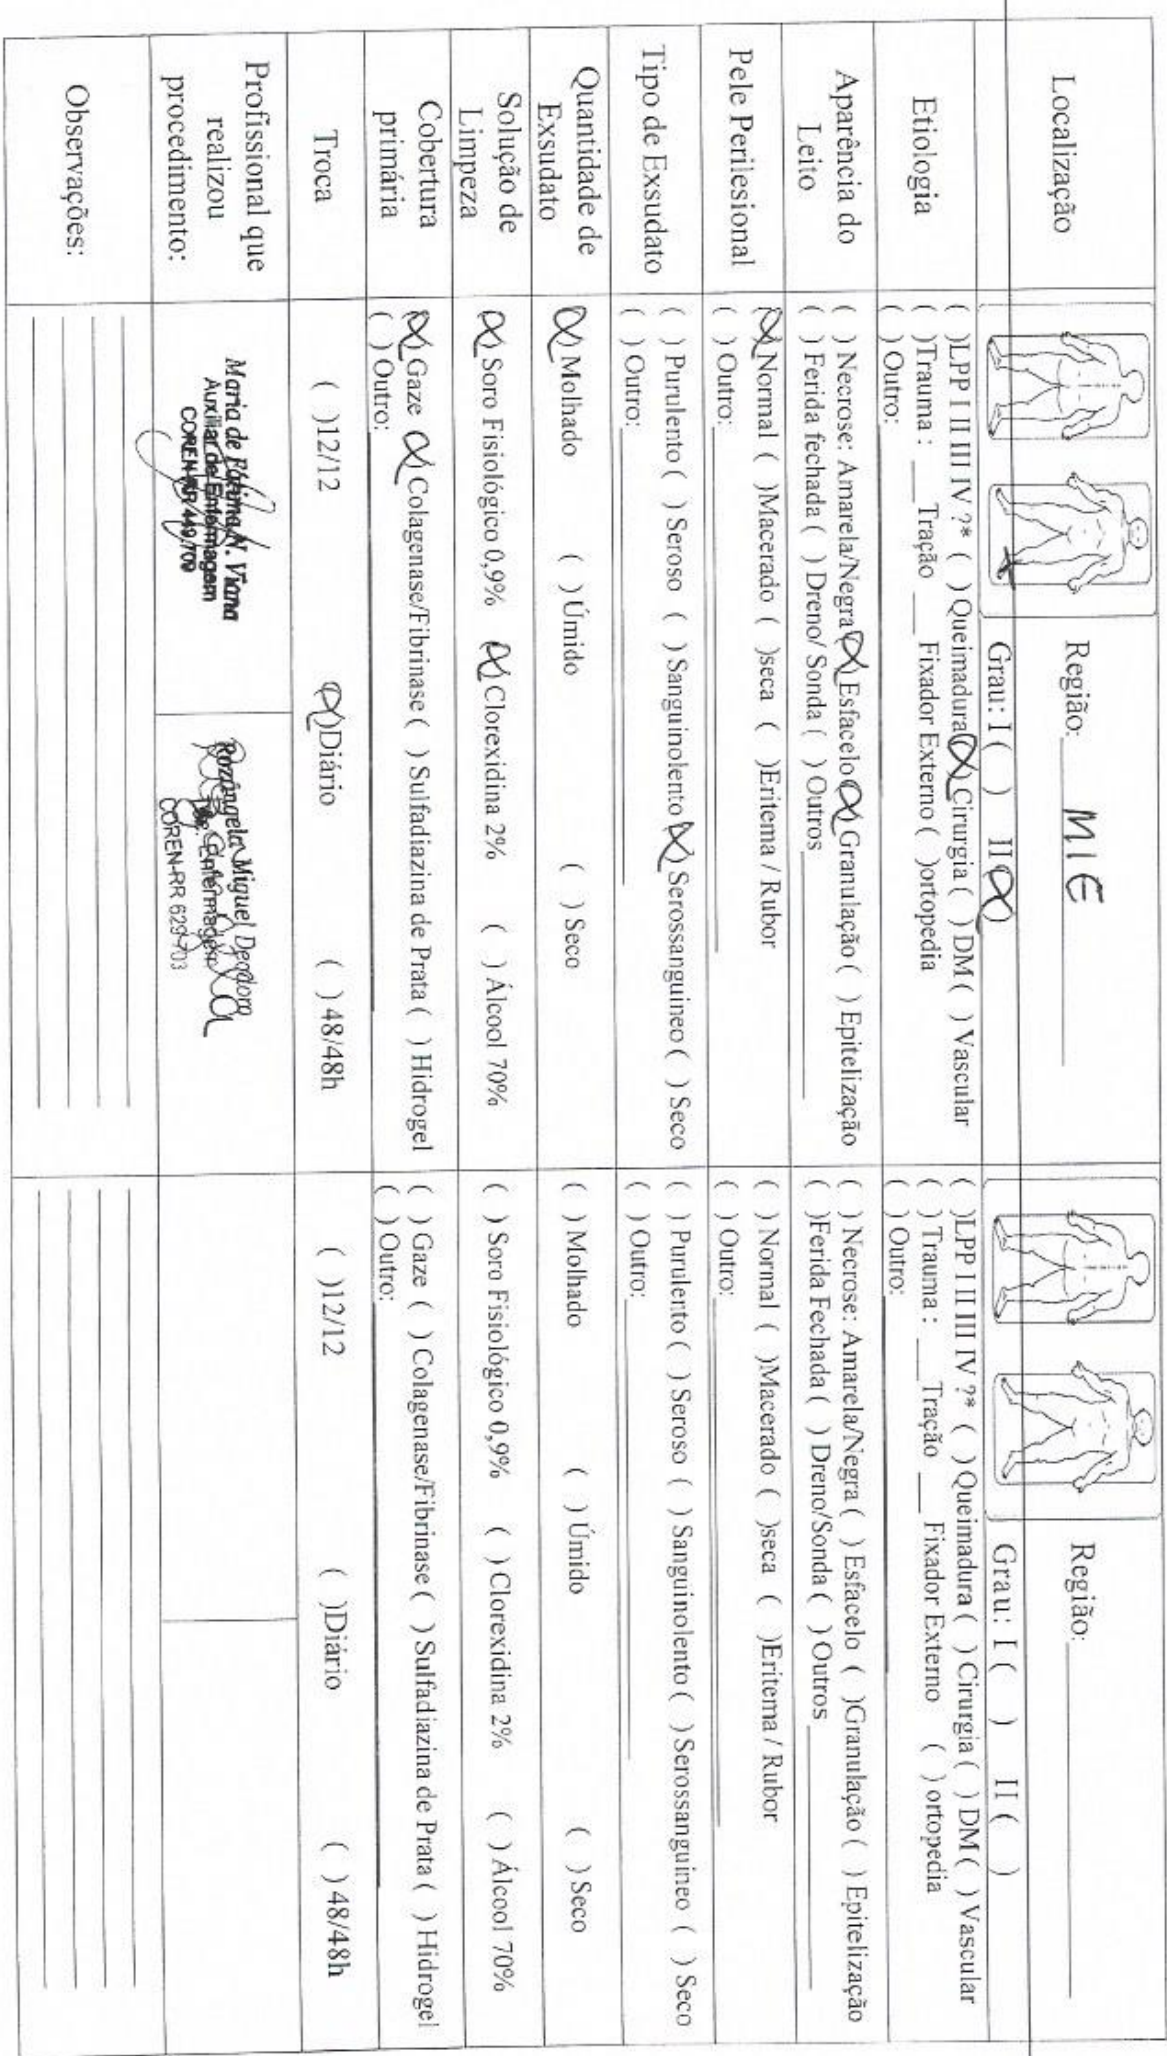 Localização
Região: MIE
Grau: I ( ) II (X)
Região:
Grau: I ( ) II ( )
Etiologia
( )LPP I II III IV ?* ( )Queimadura (X) Cirurgia ( ) DM ( ) Vascular
( )Trauma : ___ Tração ___ Fixador Externo ( )ortopedia
( ) Outro:
( )LPP I II III IV ?* ( )Queimadura ( ) Cirurgia ( ) DM ( ) Vascular
( ) Trauma : ___Tração ___ Fixador Externo ( ) ortopedia
( ) Outro:
Aparência do
Leito
( ) Necrose: Amarela/Negra (X) Esfacelo (X) Granulação ( ) Epitelização
( ) Ferida fechada ( ) Dreno/ Sonda ( ) Outros
( ) Necrose: Amarela/Negra ( ) Esfacelo ( )Granulação ( ) Epitelização
( )Ferida Fechada ( ) Dreno/Sonda ( ) Outros
Pele Perilesional
(X) Normal ( )Macerado ( )seca ( )Eritema / Rubor
( ) Outro:
( ) Normal ( )Macerado ( )seca ( )Eritema / Rubor
( ) Outro:
Tipo de Exsudato
( ) Purulento ( ) Seroso ( ) Sanguinolento (X) Serossanguineo ( ) Seco
( ) Outro:
( ) Purulento ( ) Seroso ( ) Sanguinolento ( ) Serossanguineo ( ) Seco
( ) Outro:
Quantidade de
Exsudato
(X) Molhado ( ) Úmido ( ) Seco
( ) Molhado ( ) Úmido ( ) Seco
Solução de
Limpeza
(X) Soro Fisiológico 0,9% (X) Clorexidina 2% ( ) Álcool 70%
( ) Soro Fisiológico 0,9% ( ) Clorexidina 2% ( ) Álcool 70%
Cobertura
primária
(X) Gaze (X) Colagenase/Fibrinase ( ) Sulfadiazina de Prata ( ) Hidrogel
( ) Outro:
( ) Gaze ( ) Colagenase/Fibrinase ( ) Sulfadiazina de Prata ( ) Hidrogel
( ) Outro:
Troca
( )12/12 (X)Diário ( ) 48/48h
( )12/12 ( )Diário ( ) 48/48h
Profissional que
realizou
procedimento:
Maria de Fátima N. Viana
Auxiliar de Enfermagem
COREN-RR 449.700
Rozangela Miguel Deodoro
Enfermagem
COREN-RR 629-703
Observações: